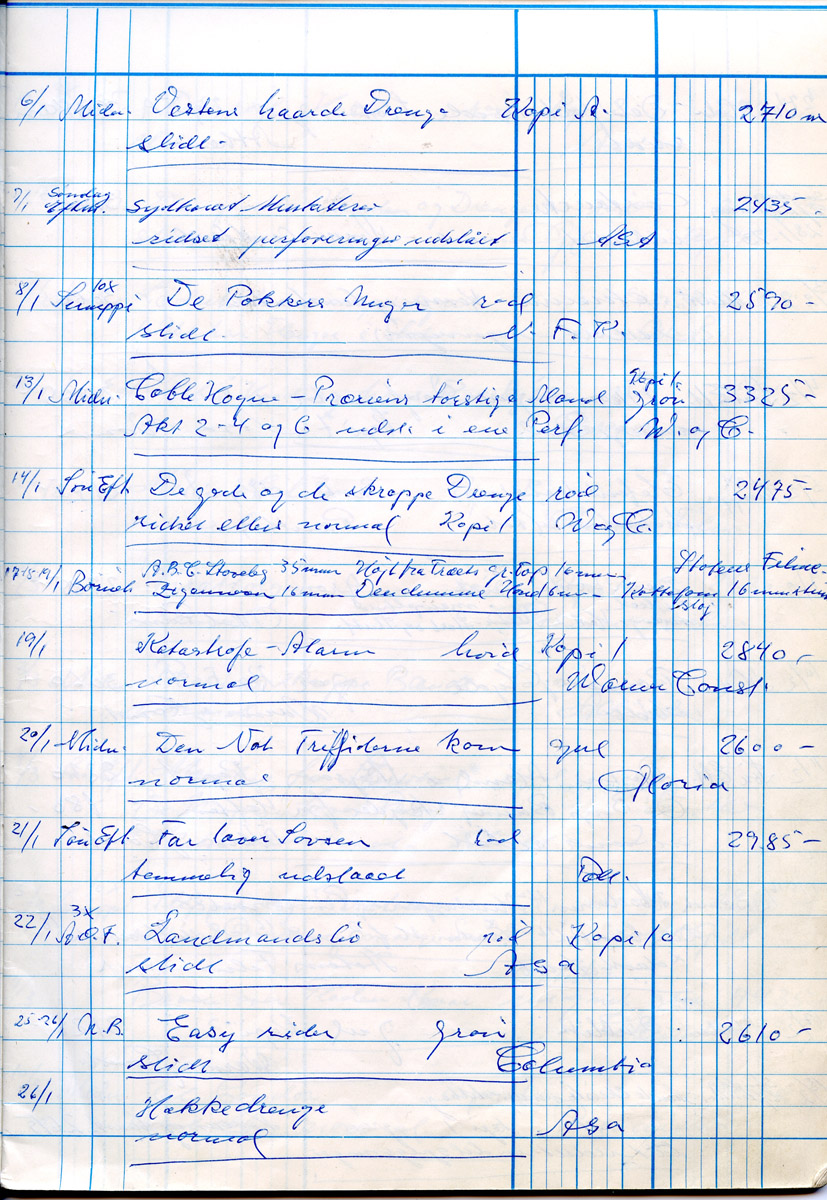 6/1 Midn. Vestens haarde Drenge Kopi A. 2710 m
slidt -
7/1 Søndag Efterm. Sydhavet Musketerer 2435
ridset perforeringer udslået ASA
8/1 10x De Pokkers Unger rød 2590 -
slidt. F. R.
13/1 Midn. Cable Hogue - Præriens tørstige Mand Kopi 1. grøn 3325 -
Akt 2-4 og 6 udsl. i ene Perf. W. og C.
14/1 Søn Eft De gode og de skrappe Drenge rød 2475 -
ridset ellers normal Kopi 1 W og C.
17-18-19/1 Børneb A.B.C. 35 mm Højt fra Træets gr. Top 16 mm
16 mm 16 mm
19/1 Katastrofe - Alarm hvid Kopi 1 2840 -
normal Warner Const.
20/1 Midn. Den Nat Triffiderne kom gul 2600 -
normal Gloria
21/1 Søn Eft. Far laver Sovsen rød 2985 -
temmelig udslaaet Pall.
22/1 3x A.O.F. Landmandsliv rød Kopi 10
slidt Asa
25-26/1 N.B. Easy rider grøn 2610 -
slidt Columbia
26/1
Hakkedrenge
normal Asa